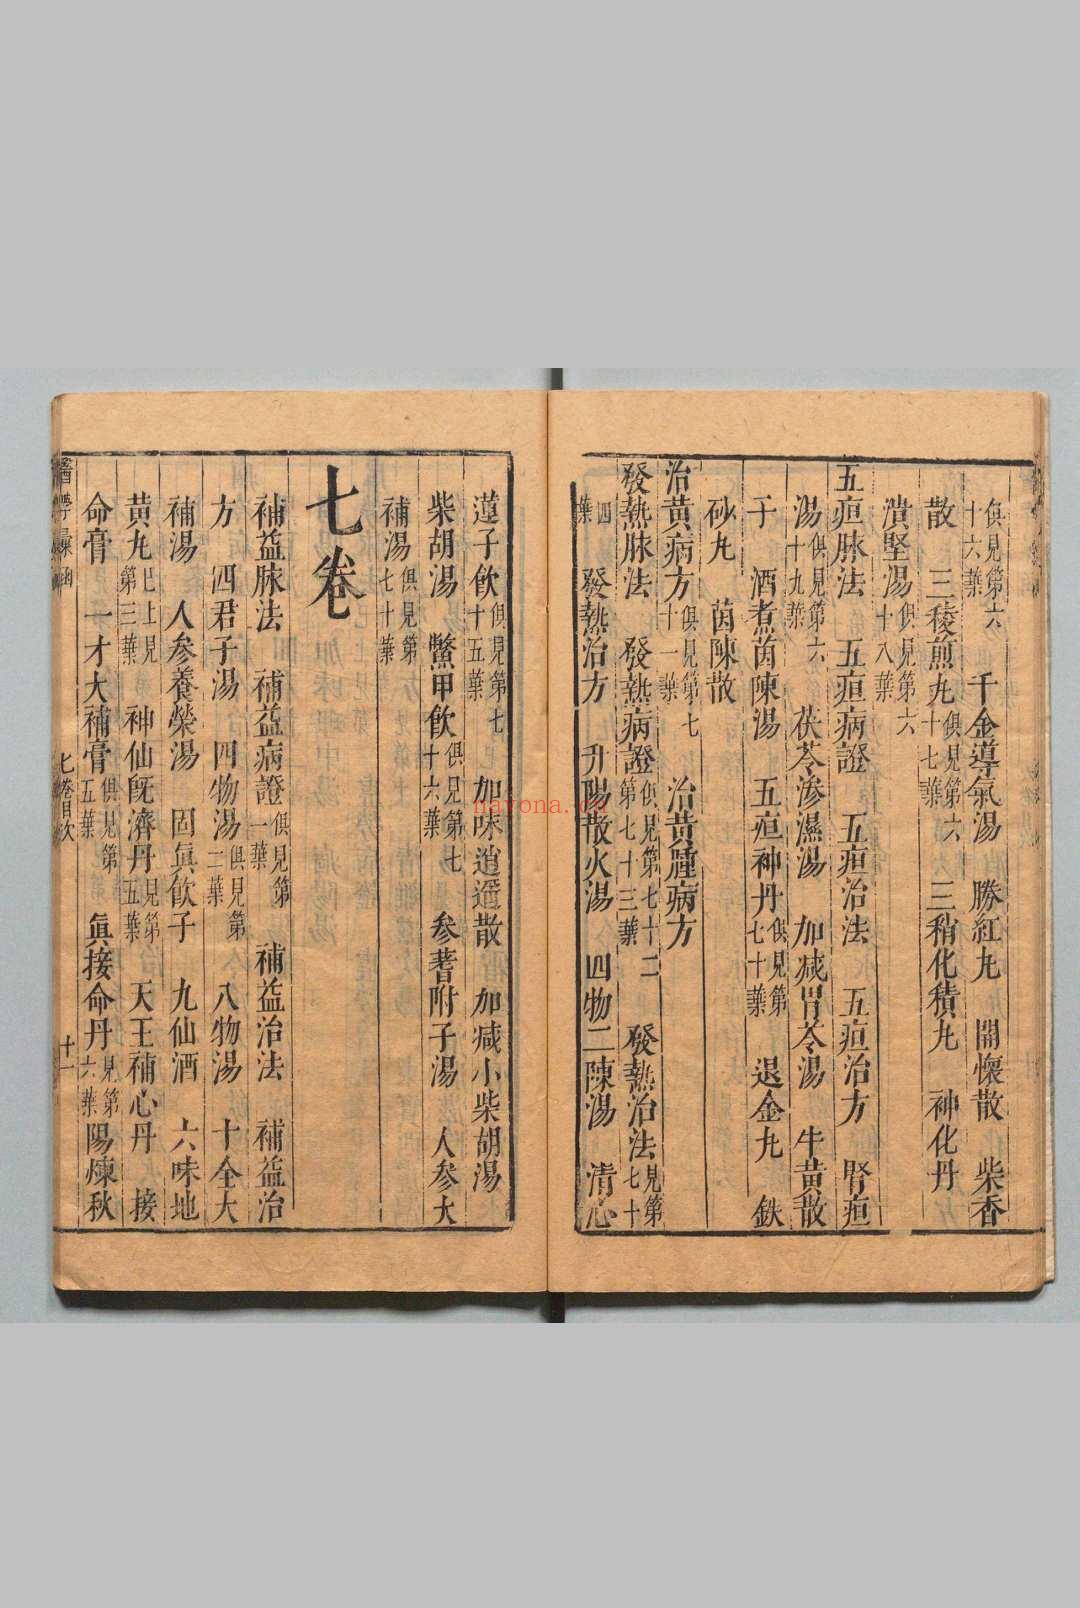 俱見第六十六葉　千金導氣湯　勝紅九　開懷散　柴香
散　三稜煎九俱見第六十七葉　三稍化積九　神化丹
潰堅湯俱見第六十八葉
五疸脉法　五疸病證　五疸治法　五疸治方　腎疸
湯俱見第六十九葉　茯苓滲濕湯　加减胃苓湯　牛黄散
子　酒煮茵陳湯　五疸神丹俱見第七十葉　退金九　鉄
砂九　茵陳散
治黄病方俱見第七十一葉　治黄腫病方
發熱脉法　發熱病證俱見第七十二第七十三葉　發熱治法見第七十
四葉　發熱治方　升陽散火湯　四物二陳湯　清心
蓮子飲俱見第七十五葉　加味逍遥散　加减小柴胡湯
柴胡湯　鱉甲飲俱見第七十六葉　參耆附子湯　人參大
補湯俱見第七十葉
七卷
補益脉法　補益病證俱見第一葉　補益治法　補益治
方　四君子湯　四物湯俱見第二葉　八物湯　十全大
補湯　人參養榮湯　固眞飲子　九仙酒　六味地
黄九已上見第三葉　神仙旣濟丹見第五葉　天王補心丹　接
命膏　一才大補膏俱見第五葉　眞接命丹見第六葉　陽煉秋
七卷目次　十一
nayona.cn